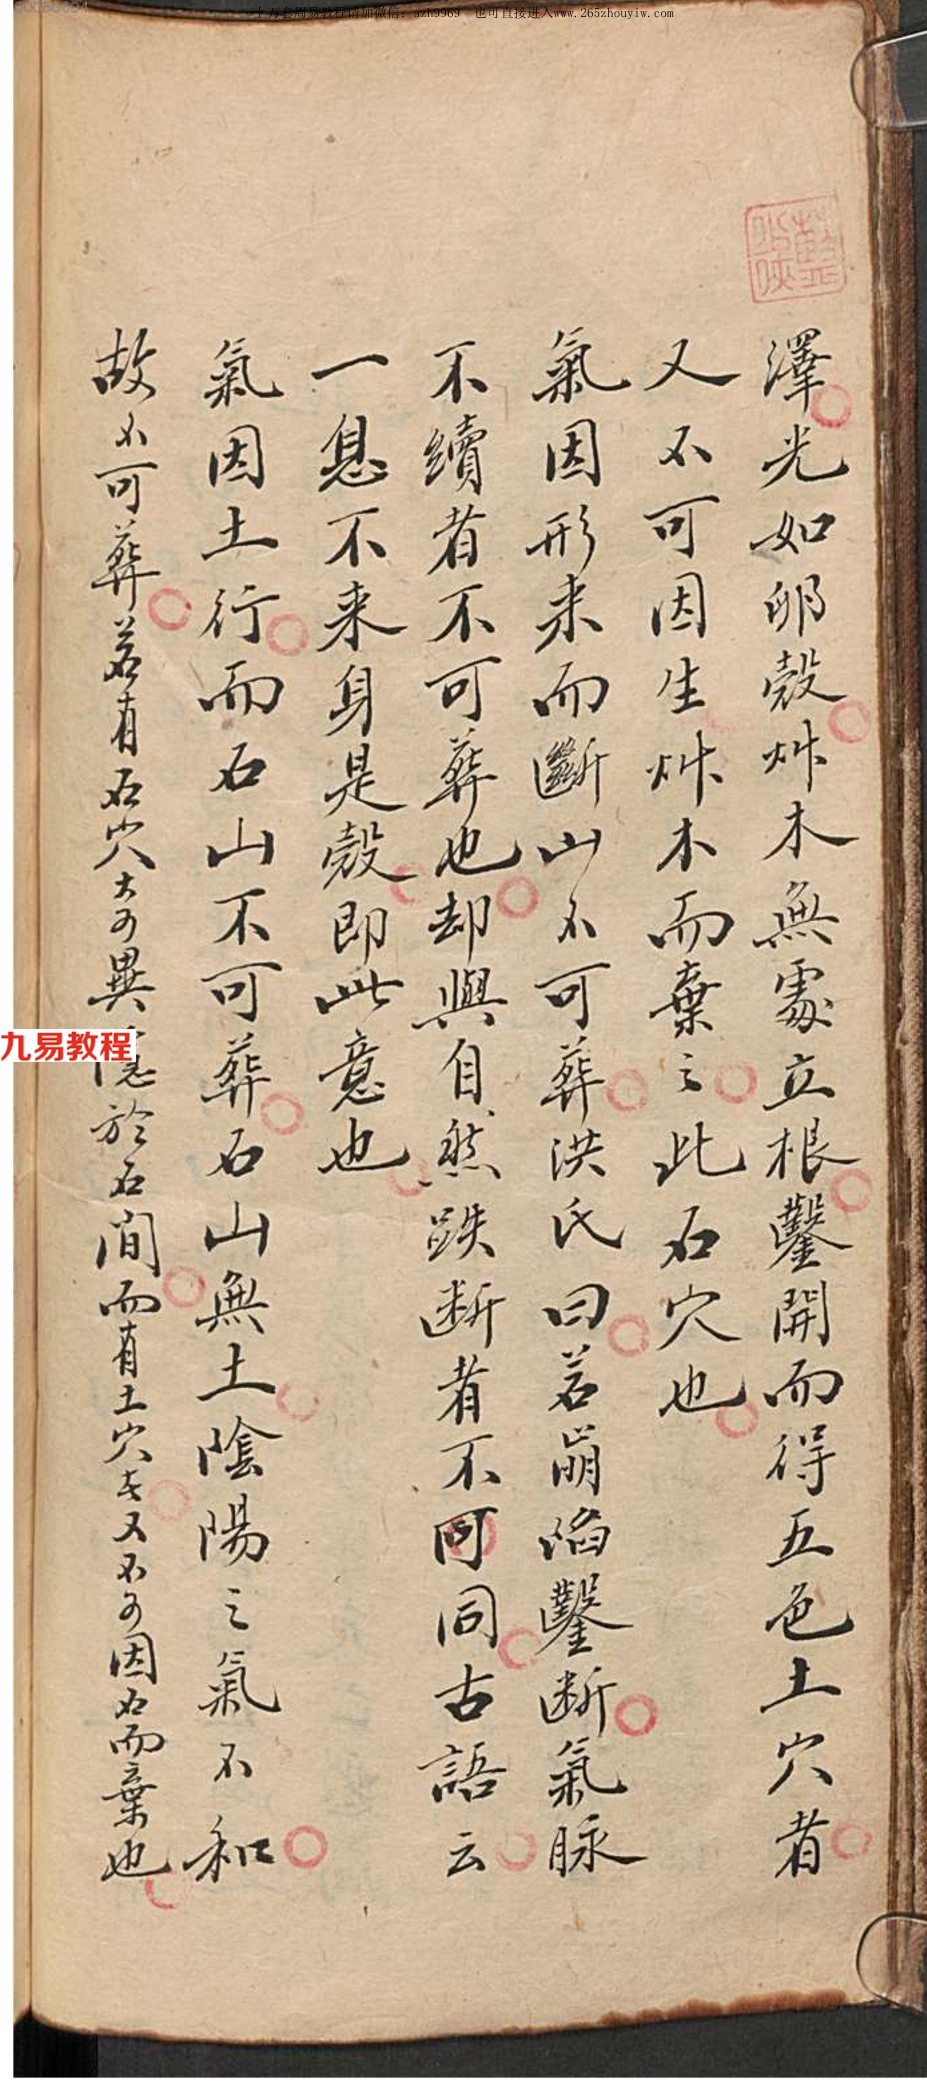 十万套周易教程加微信：azh9969 也可直接进入www.265zhouyiw.com
澤光如卵殼艸木無處立根鑿開而得五色土穴者
又不可因生艸木而棄之此石穴也
氣因形来而斷山不可葬洪氏曰若崩陷鑿断氣脉
不續者不可葬也却與自然跌断者不可同古語云
一息不来身是殼即此意也
氣因土行而石山不可葬石山無土陰陽之氣不和
故不可葬若有石穴奇異隱於石間而有土穴者又不可因石而棄也
九易教程